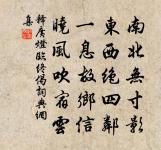 南北無寸影
東西絕四鄰
一息故鄉信
曉風吹宿雲
釋燈臨終偈詞典網
集